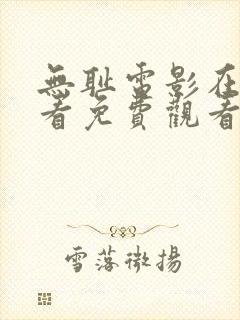 無耻電影在
看免費觀看
雪落微揚